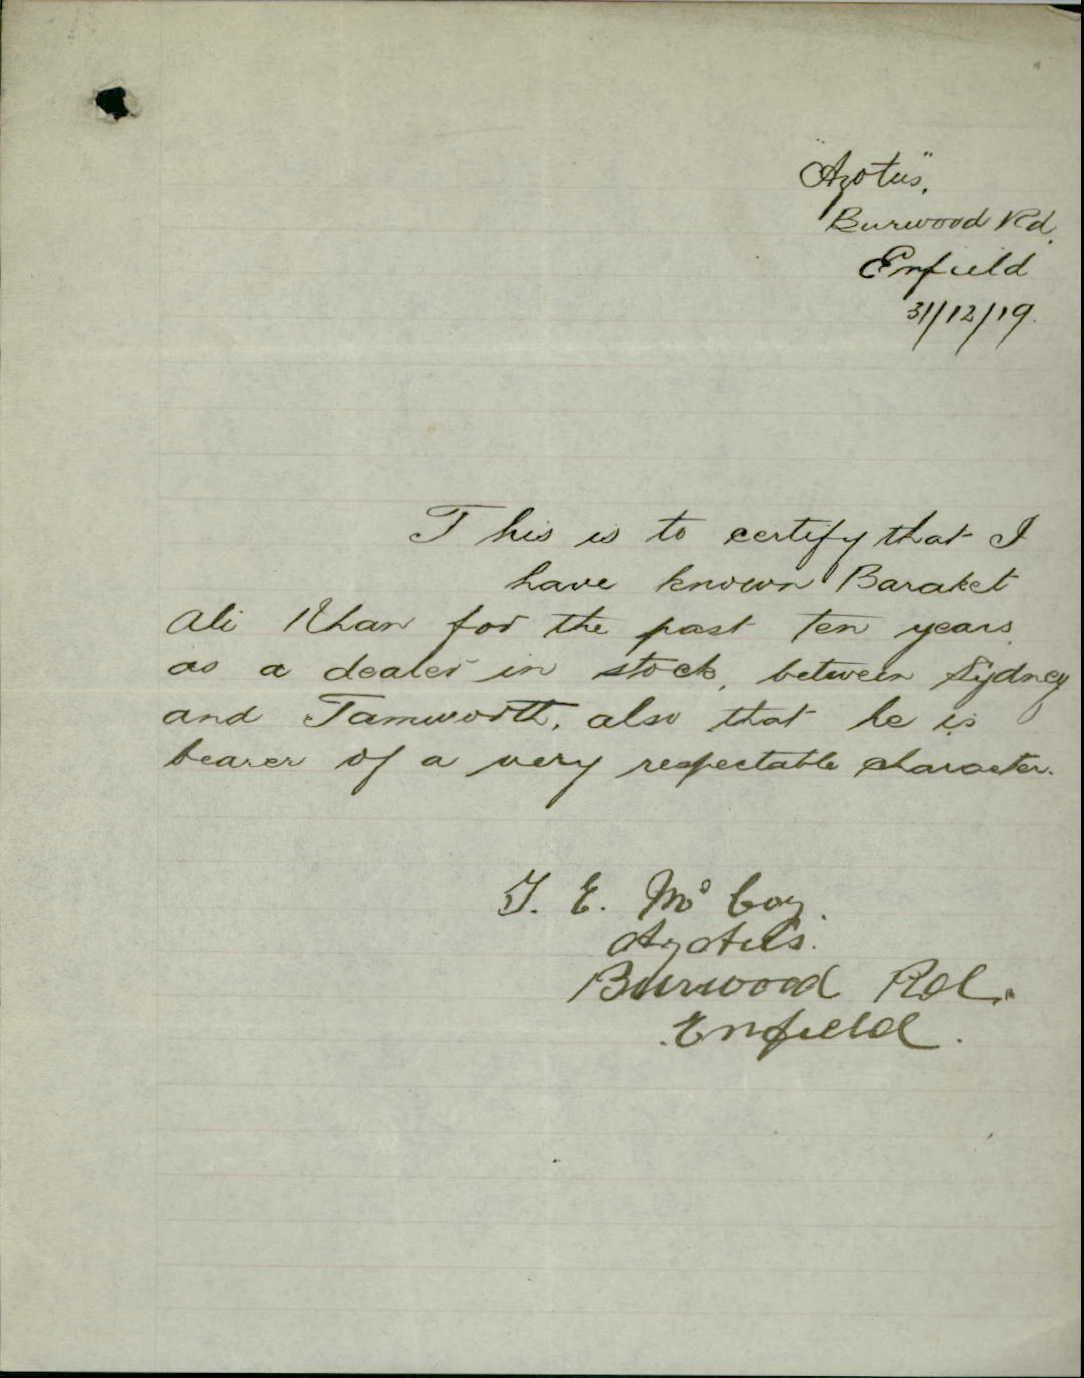 "Azotus",
Burwood Rd.
Enfield
31/12/19.
This is to certify that I
have known Baraket
Ali Khan for the past ten years
as a dealer in stock, between Sydney
and Tamworth, also that he is
bearer of a very respectable character.
T. E. McCoy.
Azotus.
Burwood Rd.
Enfield.